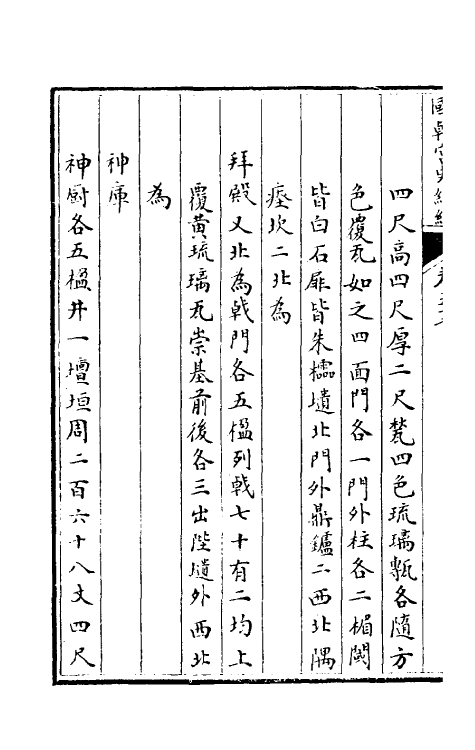 國朝宮史續編
四尺高四尺厚二尺甃四色琉璃甎各隨方
色覆瓦如之四面門各一門外柱各二楣閾
皆白石扉皆朱櫺壝北門外鼎鑪二西北隅
瘞坎二北為
拜殿又北為戟門各五楹列戟七十有二均上
覆黃琉璃瓦崇基前後各三出陛壝外西北
為
神庫
神厨各五楹井一壇垣周二百六十八丈四尺